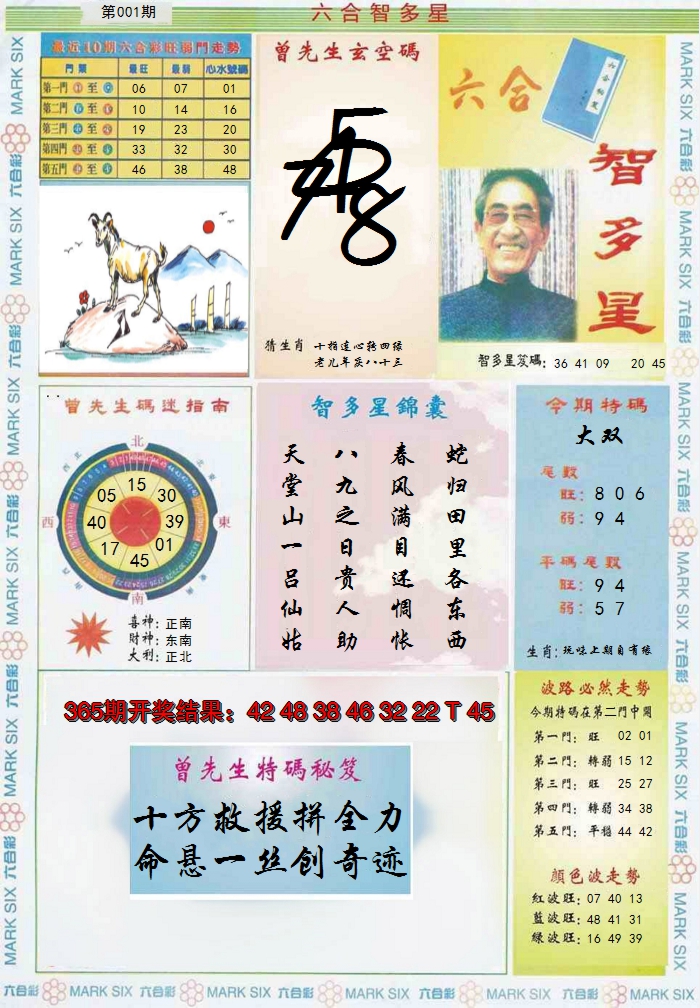 第001期
六合智多星
最近10期六合彩旺弱門走勢
門類 最旺 最弱 心水號碼
第一門 至 06 07 01
第二門 至 10 14 16
第三門 至 19 23 20
第四門 至 33 32 30
第五門 至 46 38 48
曾先生玄空碼
猜生肖 十指连心转四缘
老儿年庆八十三
六合
智多星
智多星笈碼: 36 41 09 20 45
曾先生碼迷指南
北
西
東
南
15
30
39
01
45
17
40
05
喜神: 正南
財神: 东南
大利: 正北
智多星錦囊
蛇归田里各东西
春风满目还惆怅
八九之日贵人助
天堂山一吕仙姑
今期特碼
大双
尾數
旺: 8 0 6
弱: 9 4
平碼尾數
旺: 9 4
弱: 5 7
生肖: 玩味上期自有缘
365期开奖结果: 42 48 38 46 32 22 T 45
曾先生特碼秘笈
十方救援拼全力
命悬一丝创奇迹
波路必然走势
今期特碼在第二門中開
第一門: 旺 02 01
第二門: 轉弱 15 12
第三門: 旺 25 27
第四門: 轉弱 34 38
第五門: 平穩 44 42
顏色波走勢
紅波旺: 07 40 13
藍波旺: 48 41 31
綠波旺: 16 49 39
MARK SIX 六合彩